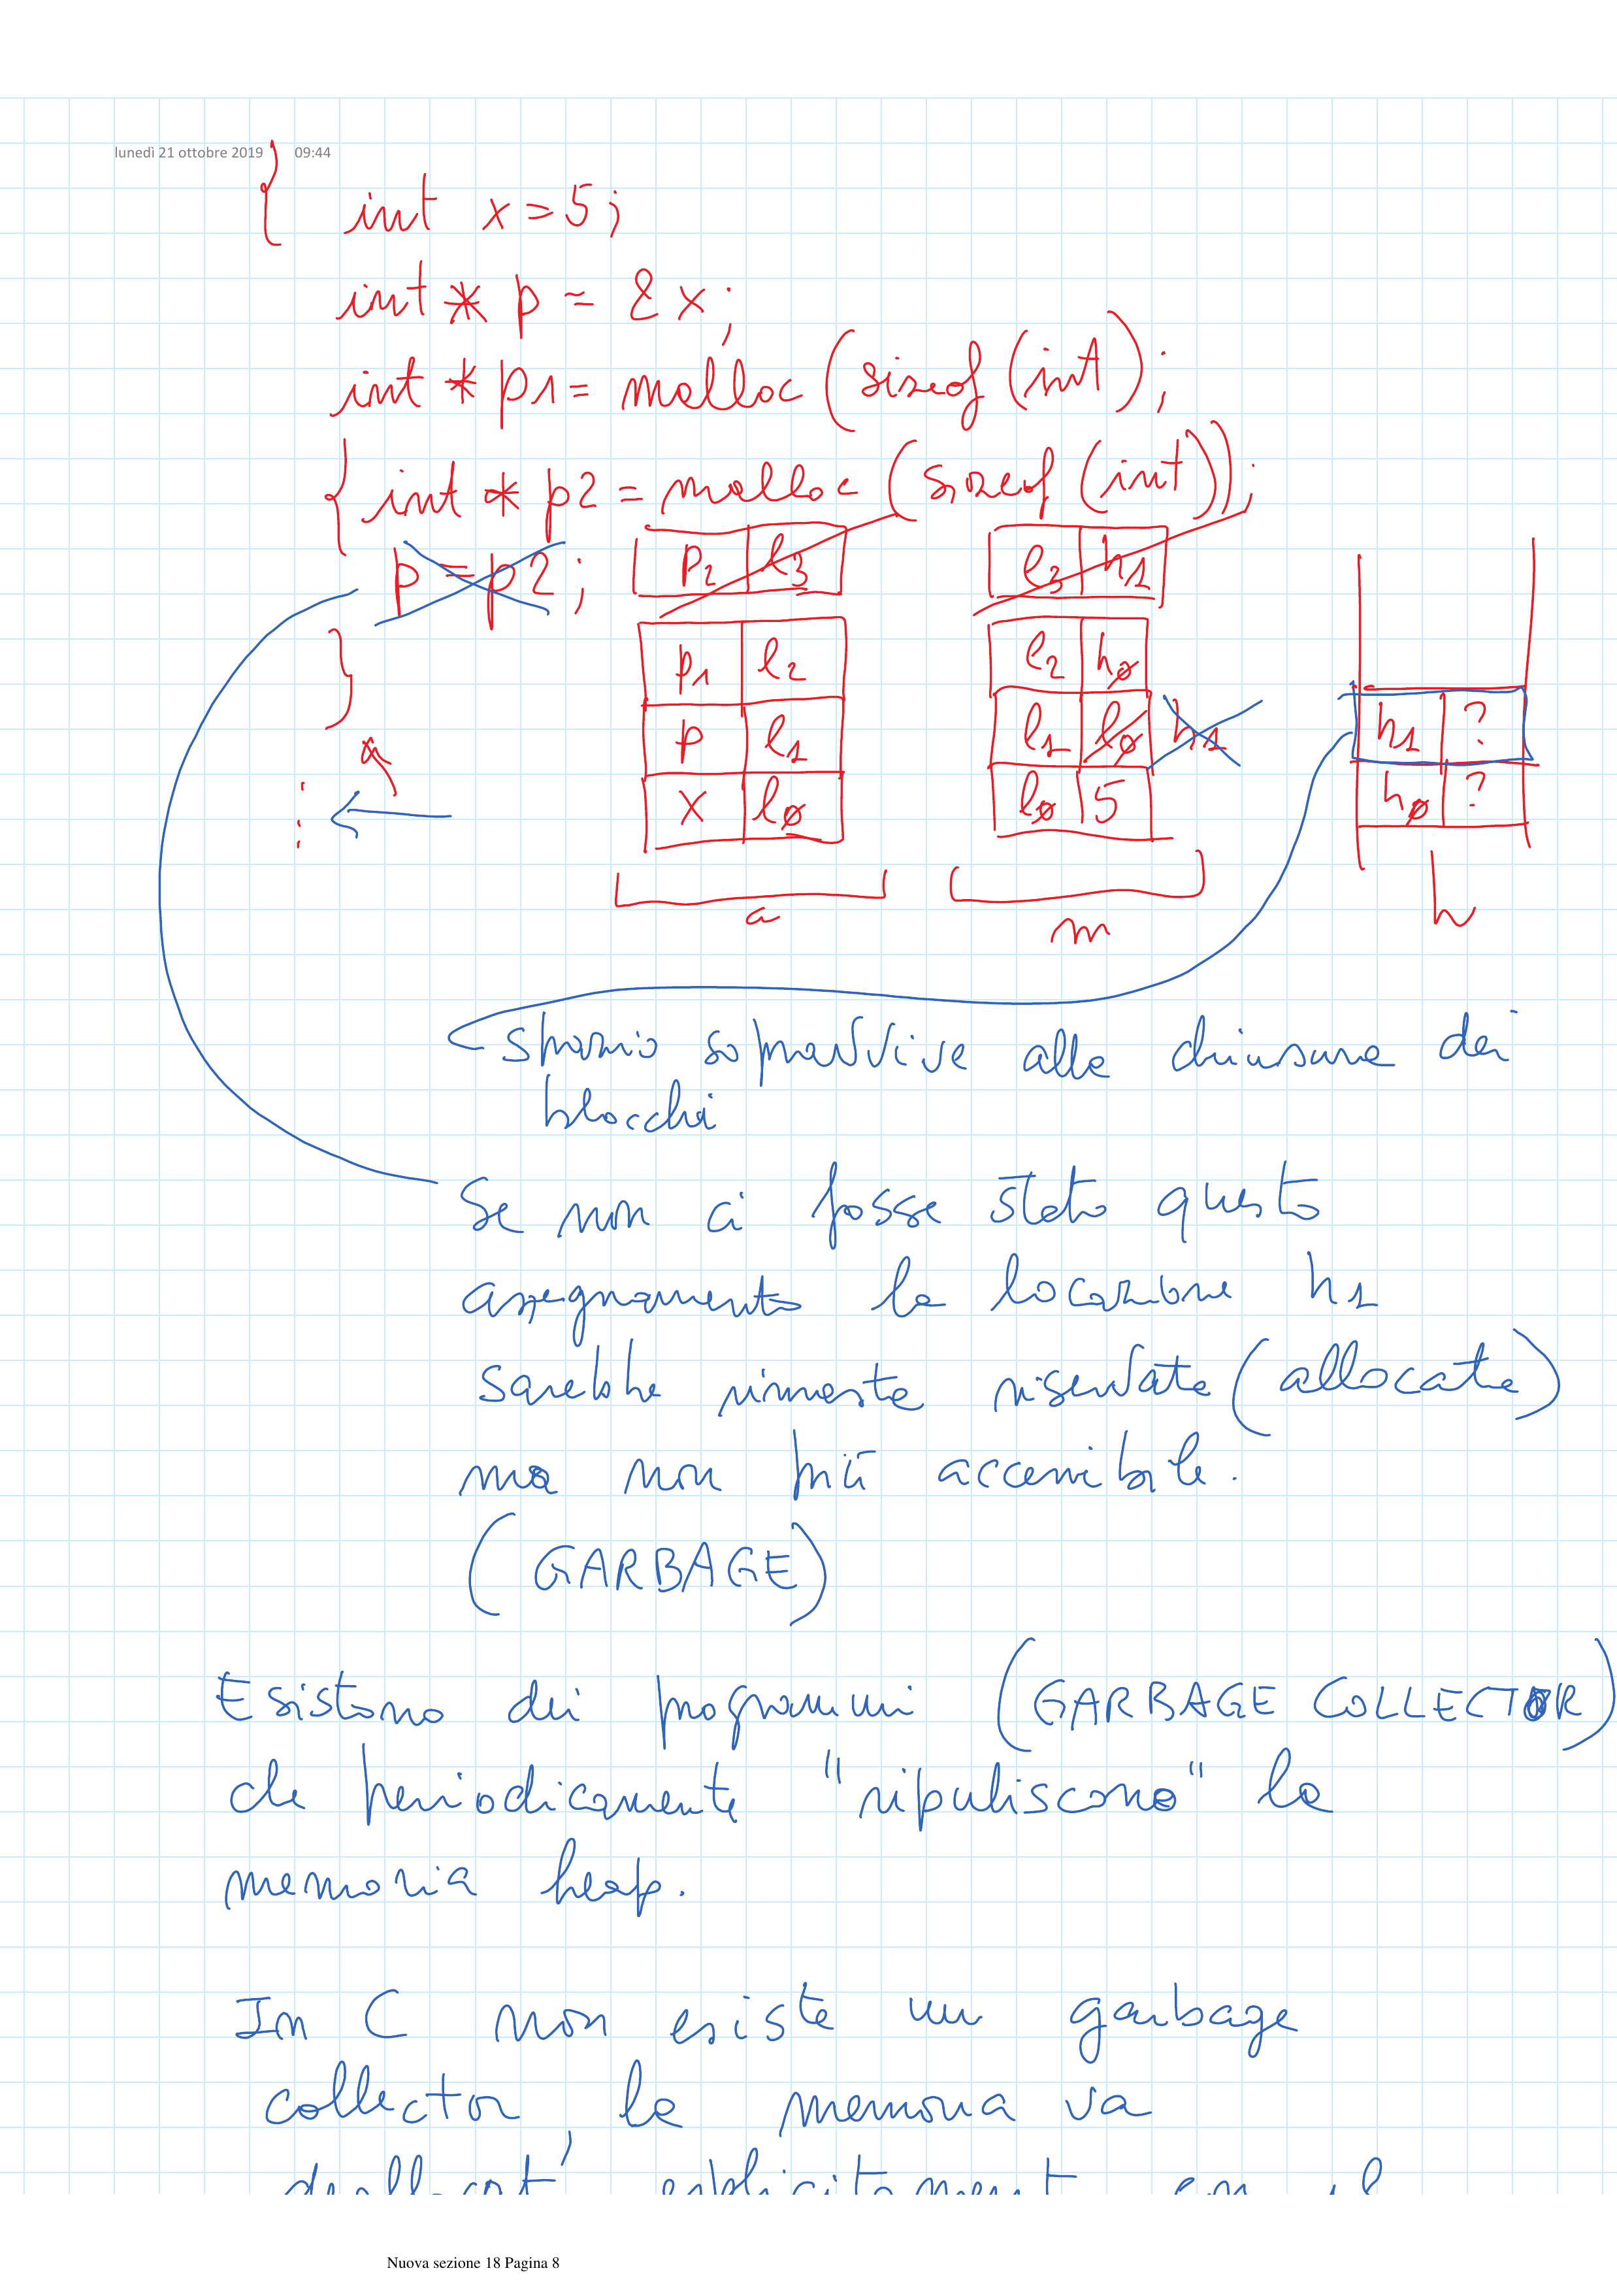 lunedì 21 ottobre 2019 09:44
{ int x = 5;
int * p = & x;
int * p1 = malloc (sizeof (int);
{ int * p2 = malloc (sizeof (int));
p = p2;
p2 l3 l3 h1
p1 l2 l2 h0
}
p l1 l1 l0 h1 h1 ?
x l0 l0 5 h0 ?
a m h
spazio sopravvive alla chiusura dei
blocchi
Se non ci fosse stato questo
assegnamento la locazione h1
sarebbe rimasta riservata (allocata)
ma non più accessibile.
(GARBAGE)
Esistono dei programmi (GARBAGE COLLECTOR)
che periodicamente "ripuliscono" la
memoria heap.
In C non esiste un garbage
collector, la memoria va
Nuova sezione 18 Pagina 8